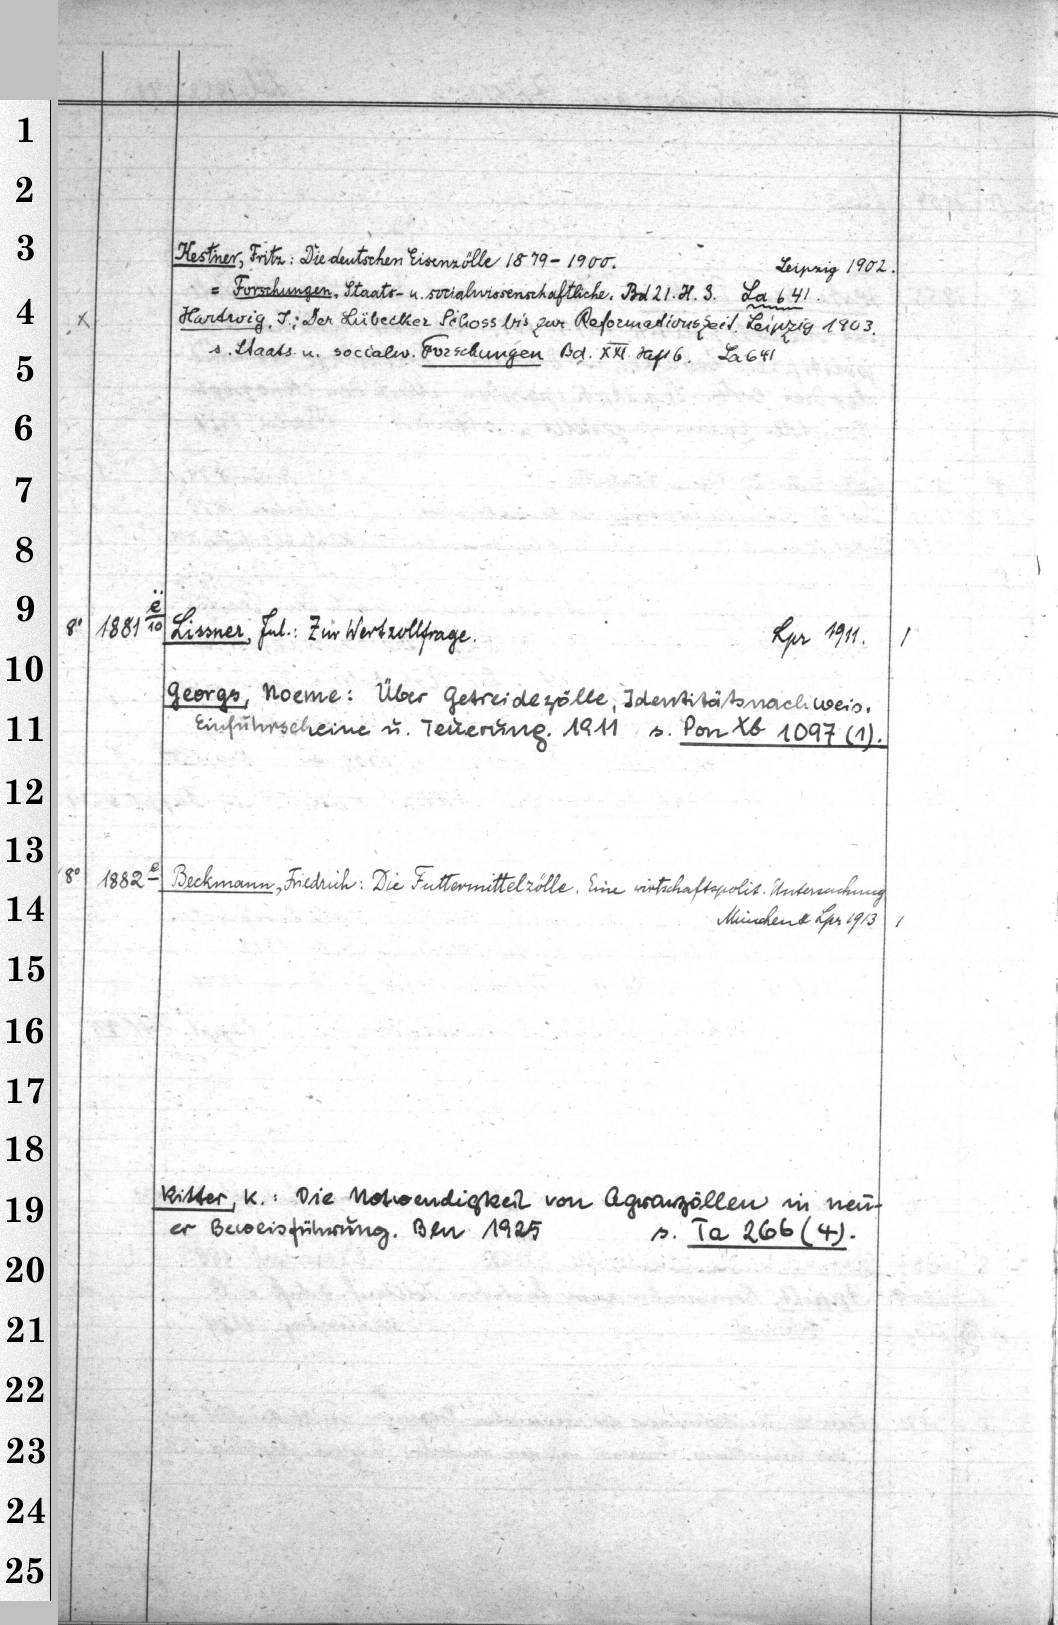 1
2
3
Kestner, Fritz: Die deutschen Eisenzölle 1879-1900. Leipzig 1902.
= Forschungen, Staats- u. socialwissenschaftliche. Bd 21. H. 3. La 641.
4
x Hartwig, J.: Der Lübecker Schoss bis zur Reformationszeit. Leipzig 1903.
s. Staats. u. socialw. Forschungen Bd. XXI. Heft 6. La 641
5
6
7
8
9
8° 1881 ë/10 Lissner, Jul.: Zur Wertzollfrage. Lpz 1911. 1
10
Georgs, Noeme: Über Getreidezölle, Identitätsnachweis,
11
Einfuhrscheine u. Teuerung. 1911 s. Pon Xb 1097 (1).
12
13
8° 1882 e Beckmann, Friedrich: Die Futtermittelzölle. Eine wirtschaftspolit. Untersuchung
14
München & Lpz 1913 1
15
16
17
18
19
Ritter, K.: Die Notwendigkeit von Agrarzöllen in neu-
er Beweisführung. Bln 1925 s. Ta 266 (4).
20
21
22
23
24
25